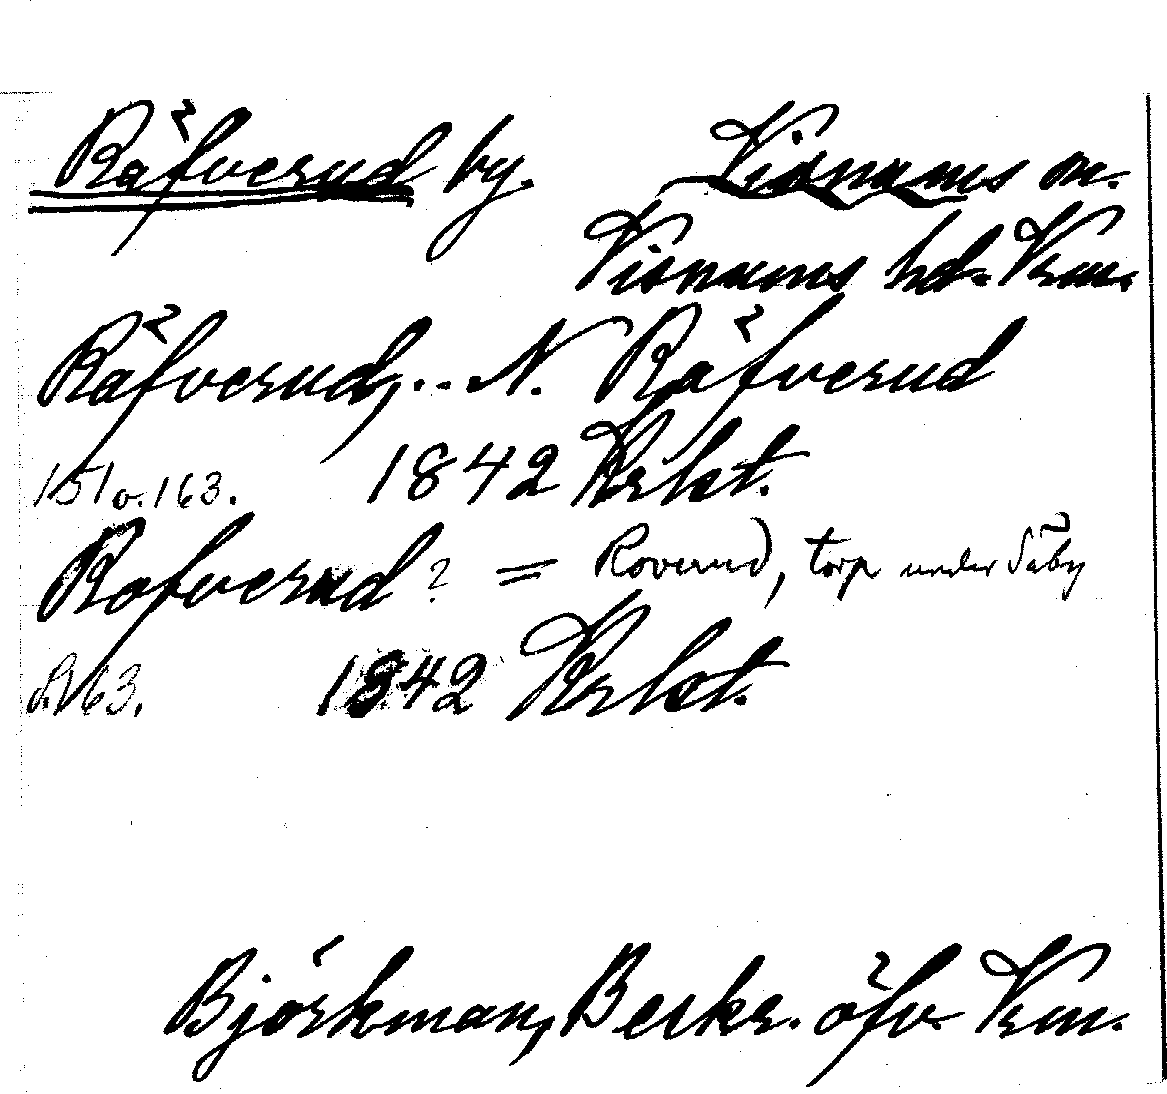 Räfverud by. Visnums sn.
Visnums hd. Vrm.
Räfverud, .. N. Räfverud
151 o. 163. 1842 Krlst.
Rafverud? = Roverud, torp under Säby
s. 163. 1842 Krlst.
Björkman, Beskr. öfv. Vrm.